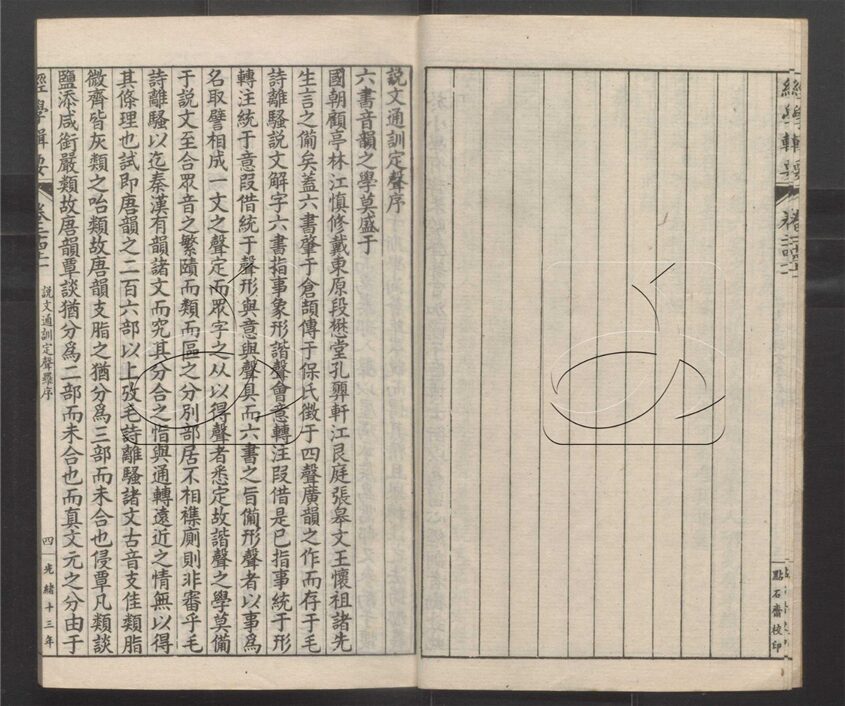 説文通訓定聲序
六書音韻之學莫盛于
國朝顧亭林江慎修戴東原段懋堂孔㢲軒江艮庭張皋文王懷祖諸先
生言之備矣蓋六書肇于倉頡傳于保氏徵于四聲廣韻之作而存于毛
詩離騷説文解字六書指事象形諧聲會意轉注叚借是已指事統于形
轉注統于意叚借統于聲形與意與聲具而六書之旨備形聲者以事爲
名取譬相成一文之聲定而眾字之从以得聲者悉定故諧聲之學莫備
于説文至合眾音之繁賾而類而區之分別部居不相襍廁則非審乎毛
詩離騷以迄秦漢有韻諸文而究其分合之恉與通轉遠近之情無以得
其條理也試即唐韻之二百六部以上攷毛詩離騷諸文古音支佳類脂
微齊皆灰類之咍類故唐韻支脂之猶分爲三部而未合也侵覃凡類談
鹽添咸銜嚴類故唐韻覃談猶分爲二部而未合也而真文元之分由于
經學輯要 卷二四十一 説文通訓定聲羅序 四 光緒十三年
點石齋校印